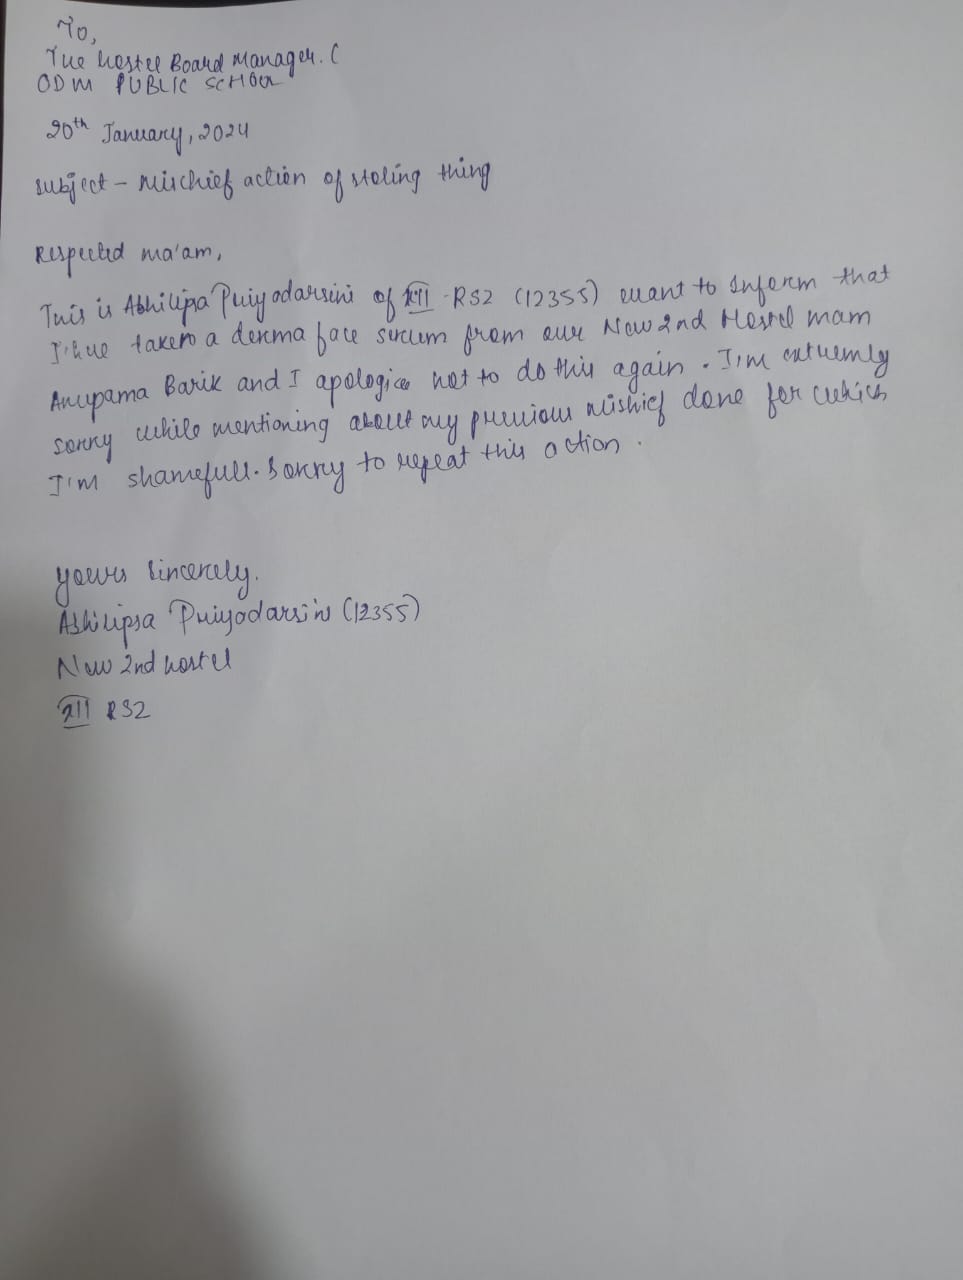 To,
The Hostel Board Manager. (
ODM PUBLIC SCHOOL
20th January, 2024
Subject - Mischief action of stoling thing
Respected ma'am,
This is Abhilipsa Priyodarsini of XII - RS2 (12355) want to Inform that
I'hve taken a derma face serum from our New 2nd Hostel mam
Anupama Barik and I apologice not to do this again. I'm extremly
sorry while mentioning about my previous mishief done for which
I'm shamefull. Sorry to repeat this action.
Yours Sincerely.
Abhilipsa Priyodarsini (12355)
New 2nd hostel
XII RS2